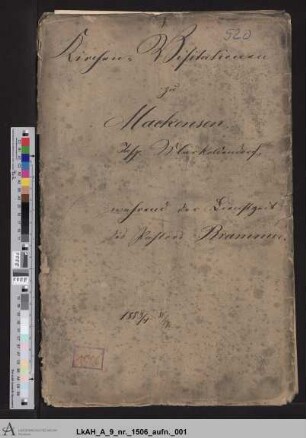 520
Kirchen-Visitationen
zu
Mackensen
Insp. Markoldendorf,
während der Dienstzeit
des Pastors Brammer.
LkAH_A_9_nr._1506_aufn._001